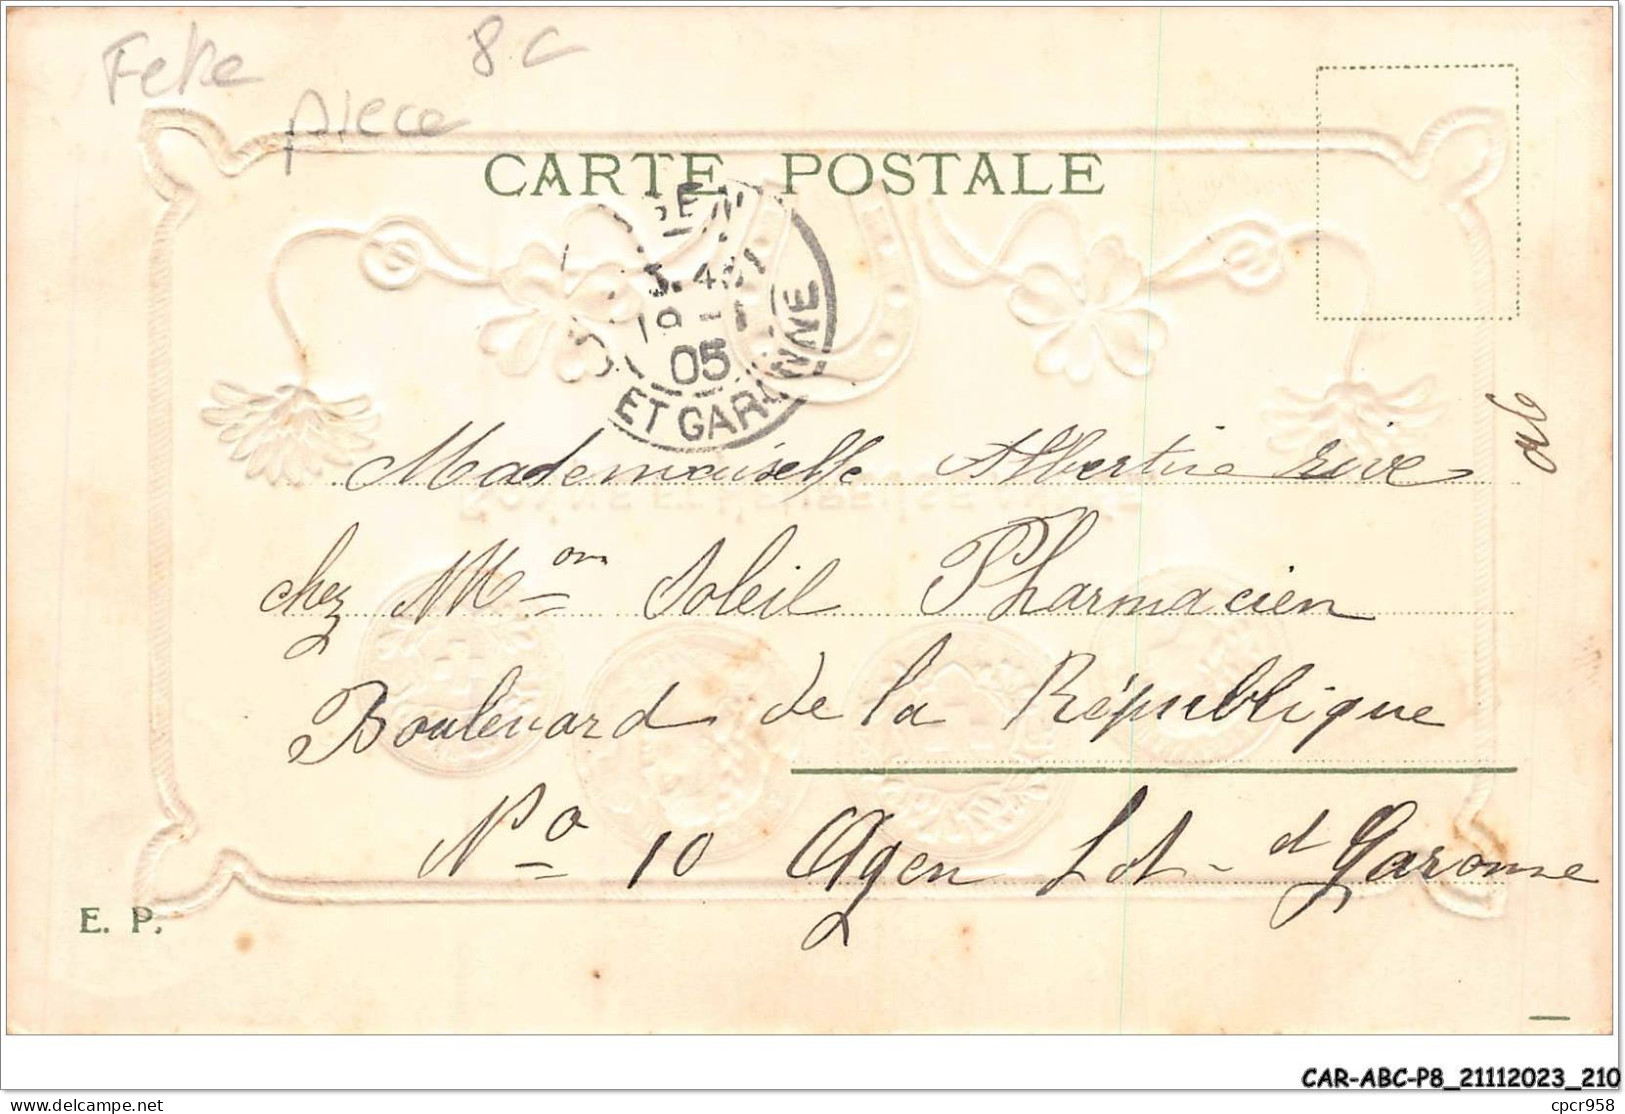 Fete 8 C
piece
CARTE POSTALE
3. 45
19 - 1
05
ET GARONNE
Mademoiselle Albertine rive
chez Mᵒⁿ Soleil Pharmacien
Boulevard de la République
Nᵒ 10 Agen Lot - d Garonne
E. P.
CAR-ABC-P8_21112023_210
delcampe.net
cpcr958